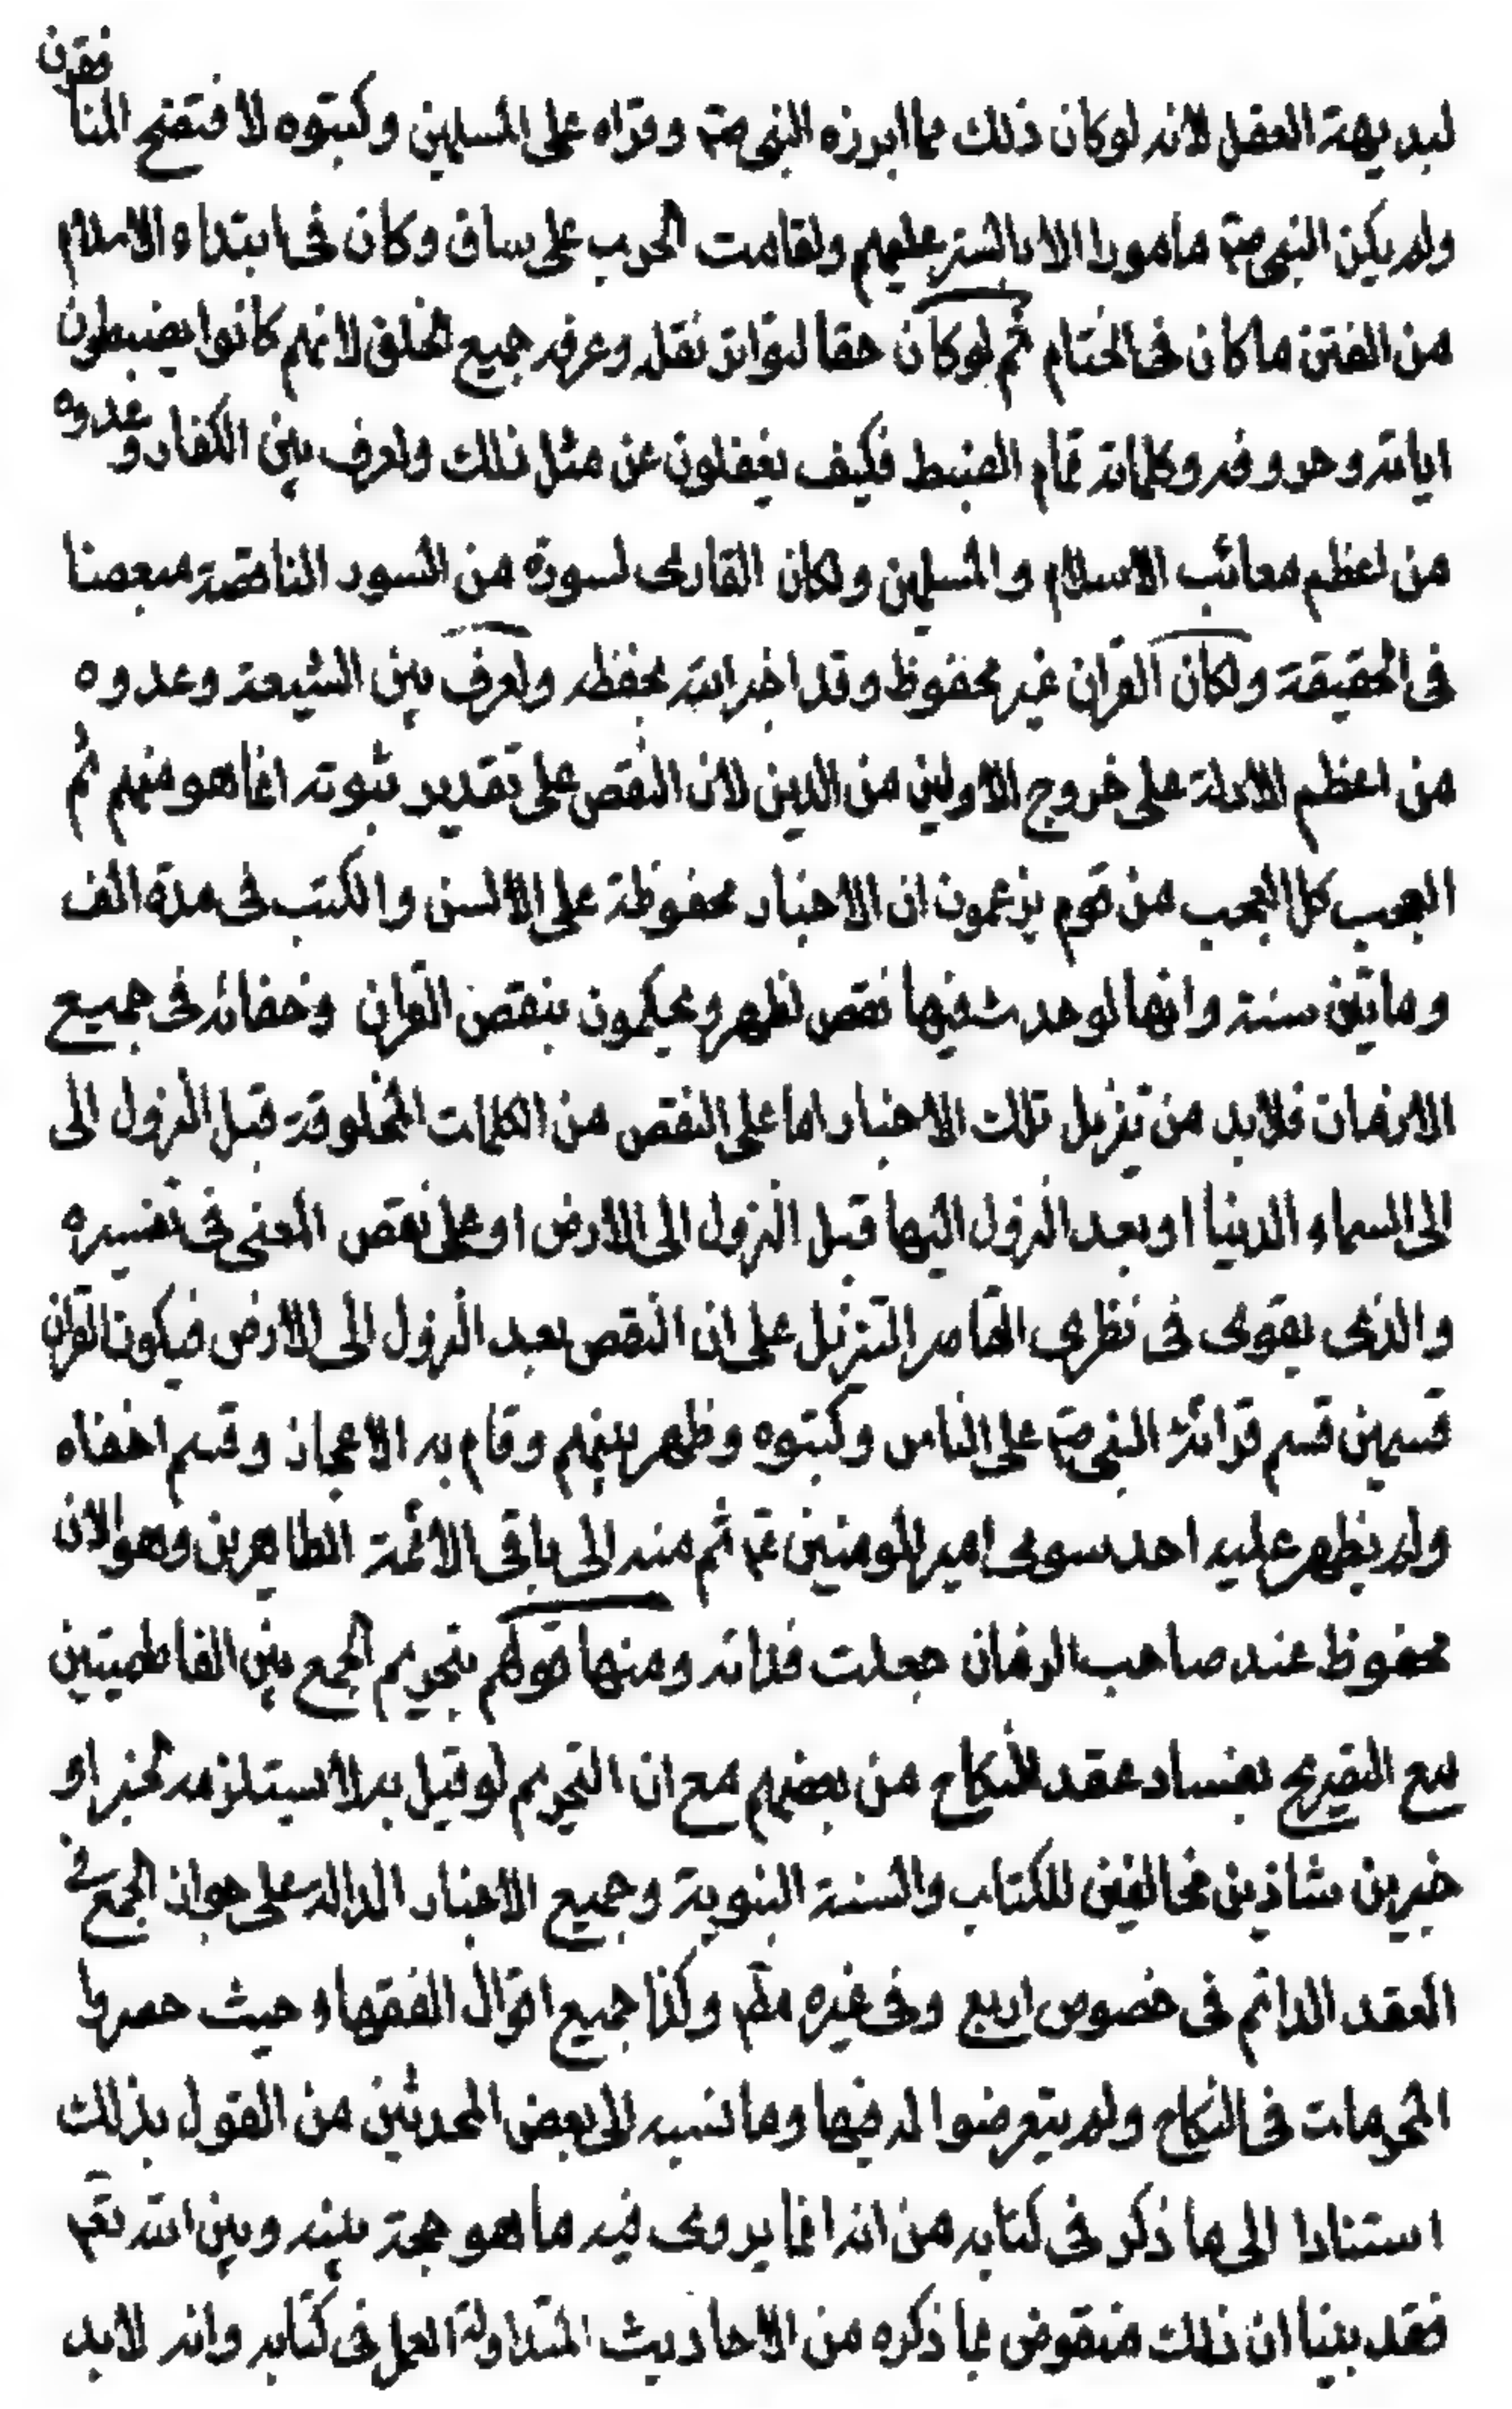 لبديهة العقل لانه لوكان ذلك مما ابرزه النبي صم وقراه على المسلمين وكتبوه لافتضح المنافقون
ولم يكن النبي صم مامورا الا بالستر عليهم ولقامت الحرب على ساق وكان في ابتداء الاسلام
من الفتن ماكان في الختام ثم لوكان حقا لتواتر نقله وعرفه جميع الخلق لانهم كانوا يضبطون
اياته وحروفه وكلماته تمام الضبط فكيف يغفلون عن مثل ذلك ولعرف بين الكفار وعدوه
من اعظم معائب الاسلام والمسلمين ولكان القارى لسورة من السور الناقصة مبعضا
في الحقيقة ولكان القران غير محفوظ وقد اخبر الله بحفظه ولعرف بين الشيعة وعدوه
من اعظم الادلة على خروج الاولين من الدين لان النقص على تقدير ثبوته انما هو منهم ثم
العجب كل العجب من قوم يزعمون ان الاخبار محفوظة على الالسن والكتب في مدة الف
وماتين سنة وانها لو حدث فيها نقص لظهر ويحكمون بنقص القران وخفائه في جميع
الازمان فلابد من تنزيل تلك الاخبار اما على النقص من الكلمات المخلوقة قبل النزول الى
الى السماء الدنيا او بعد النزول اليها قبل النزول الى الارض او على نقص المعنى في تفسيره
والذى يقوى في نظرى القاصر التنزيل على ان النقص بعد النزول الى الارض فيكون القران
قسمين قسم قرائة النبي صم على الناس وكتبوه وظهر بينهم وقام به الاعجاز وقسم اخفاه
ولم يظهر عليه احد سوى امير المومنين عم ثم منه الى باقي الائمة الطاهرين وهو الان
محفوظ عند صاحب الزمان جعلت فداته ومنها قولهم بتحريم الجمع بين الفاطميتين
مع التصريح بفساد عقد النكاح من بعضهم مع ان التحريم لو قيل به لا يستلزمه لخبر او
خبرين شاذين مخالفين للكتاب والسنة النبوية وجميع الاخبار الدالة على جواز الجمع في
العقد الدائم في خصوص اربع وفي غيره مطم وكذا جميع اقوال الفقهاء حيث حصروا
المحرمات في النكاح ولم يتعرضوا له فيها وما نسب الى بعض المحدثين من القول بذلك
استنادا الى ما ذكر في كتابه من انه انما يروى فيه ما هو حجة بينه وبين الله تعم
فقد بينا ان ذلك منقوض بما ذكره من الاحاديث المتداولة العمل في كتابه وانه لابد